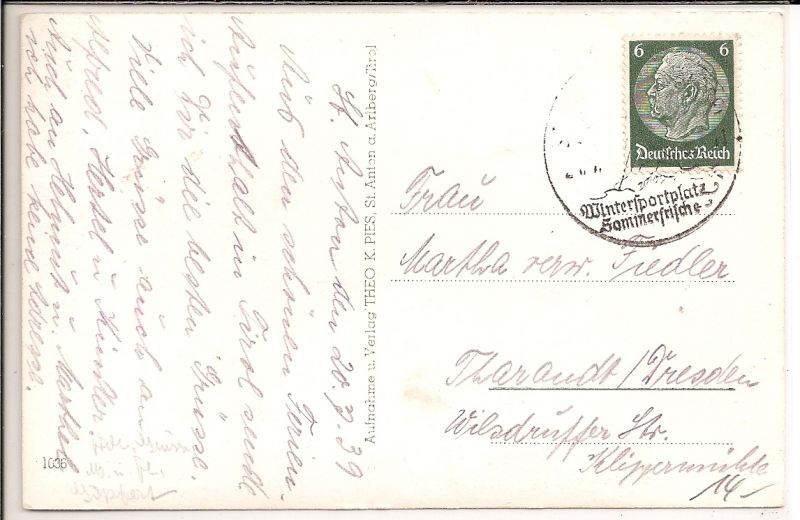 St. Anton den 20.7.39
Aus dem schönen Ferien-
Aufenthalt in Tirol sende
ich Dir die besten Grüsse.
Viele Grüsse auch an
Alfred, Hersel u. Kinder.
Auch an Helmut u. Martha
von habe keine Adresse.
Aufnahme u. Verlag THEO K. PIES, St. Anton a. Arlberg/Tirol
1036
6 6
Deutsches Reich
Wintersportplatz
Sommerfrische
Frau
Martha verw. Fiedler
Tharandt/Dresden
Wilsdruffer Str.
Klippermühle
14-